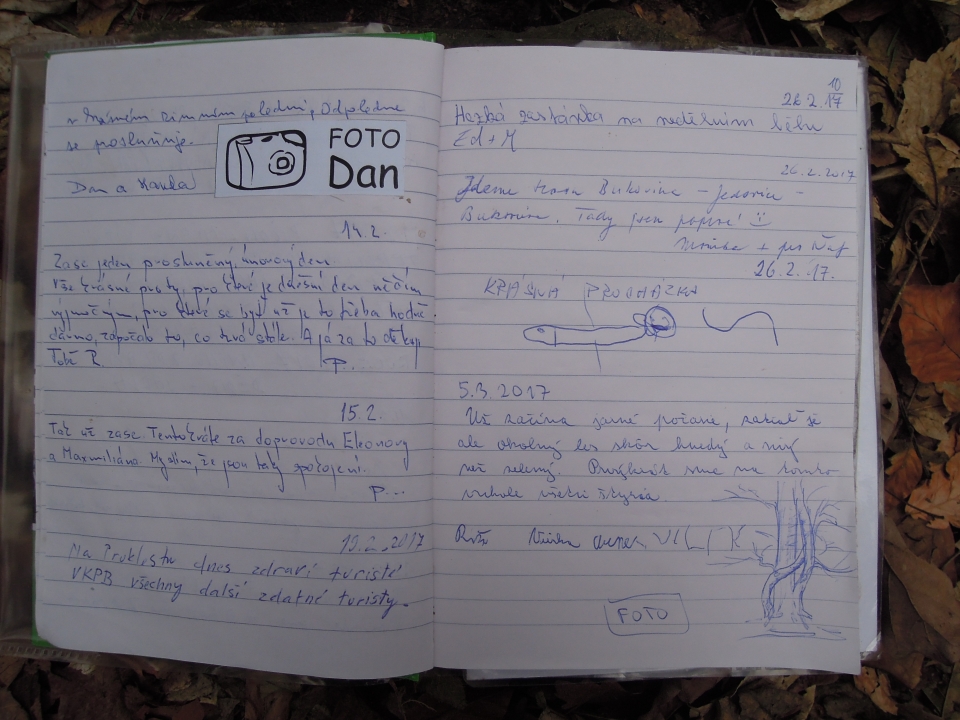 v krásném zimním poledni, Odpoledne
se posluňuje.
FOTO
Dan
Dan a Hanka
14.2.
Zase jeden prosluněný únorový den
Vše krásné pro ty, pro které je dnešní den něčím
výjimečným, pro které se byť už je to třeba hodně
dávno, započalo to, co trvá stále. A já za to děkuji
Tobě R. P...
15.2.
Tak už zase. Tentokráte za doprovodu Eleonory
a Maxmiliána. Myslím, že jsou taky spokojení.
P...
19.2.2017
Na Proklestu dnes zdraví turisté
VKPB všechny další zdatné turisty.
10
26.2.17
Hezká zastávka na nedělním běhu
Ed + M
26.2.2017
Jdeme trasu Bukovina – Jedovnice –
Bukovina. Tady jsem poprvé!
+ pes
26.2.17.
KRÁSNÁ PROCHÁZKA
5.3.2017
Už začína jarné počasie, zatiaľ je
ale okolný les skôr hnedý a sivý
než zelený. sme na tomto
vrchole všetci štyria
FOTO